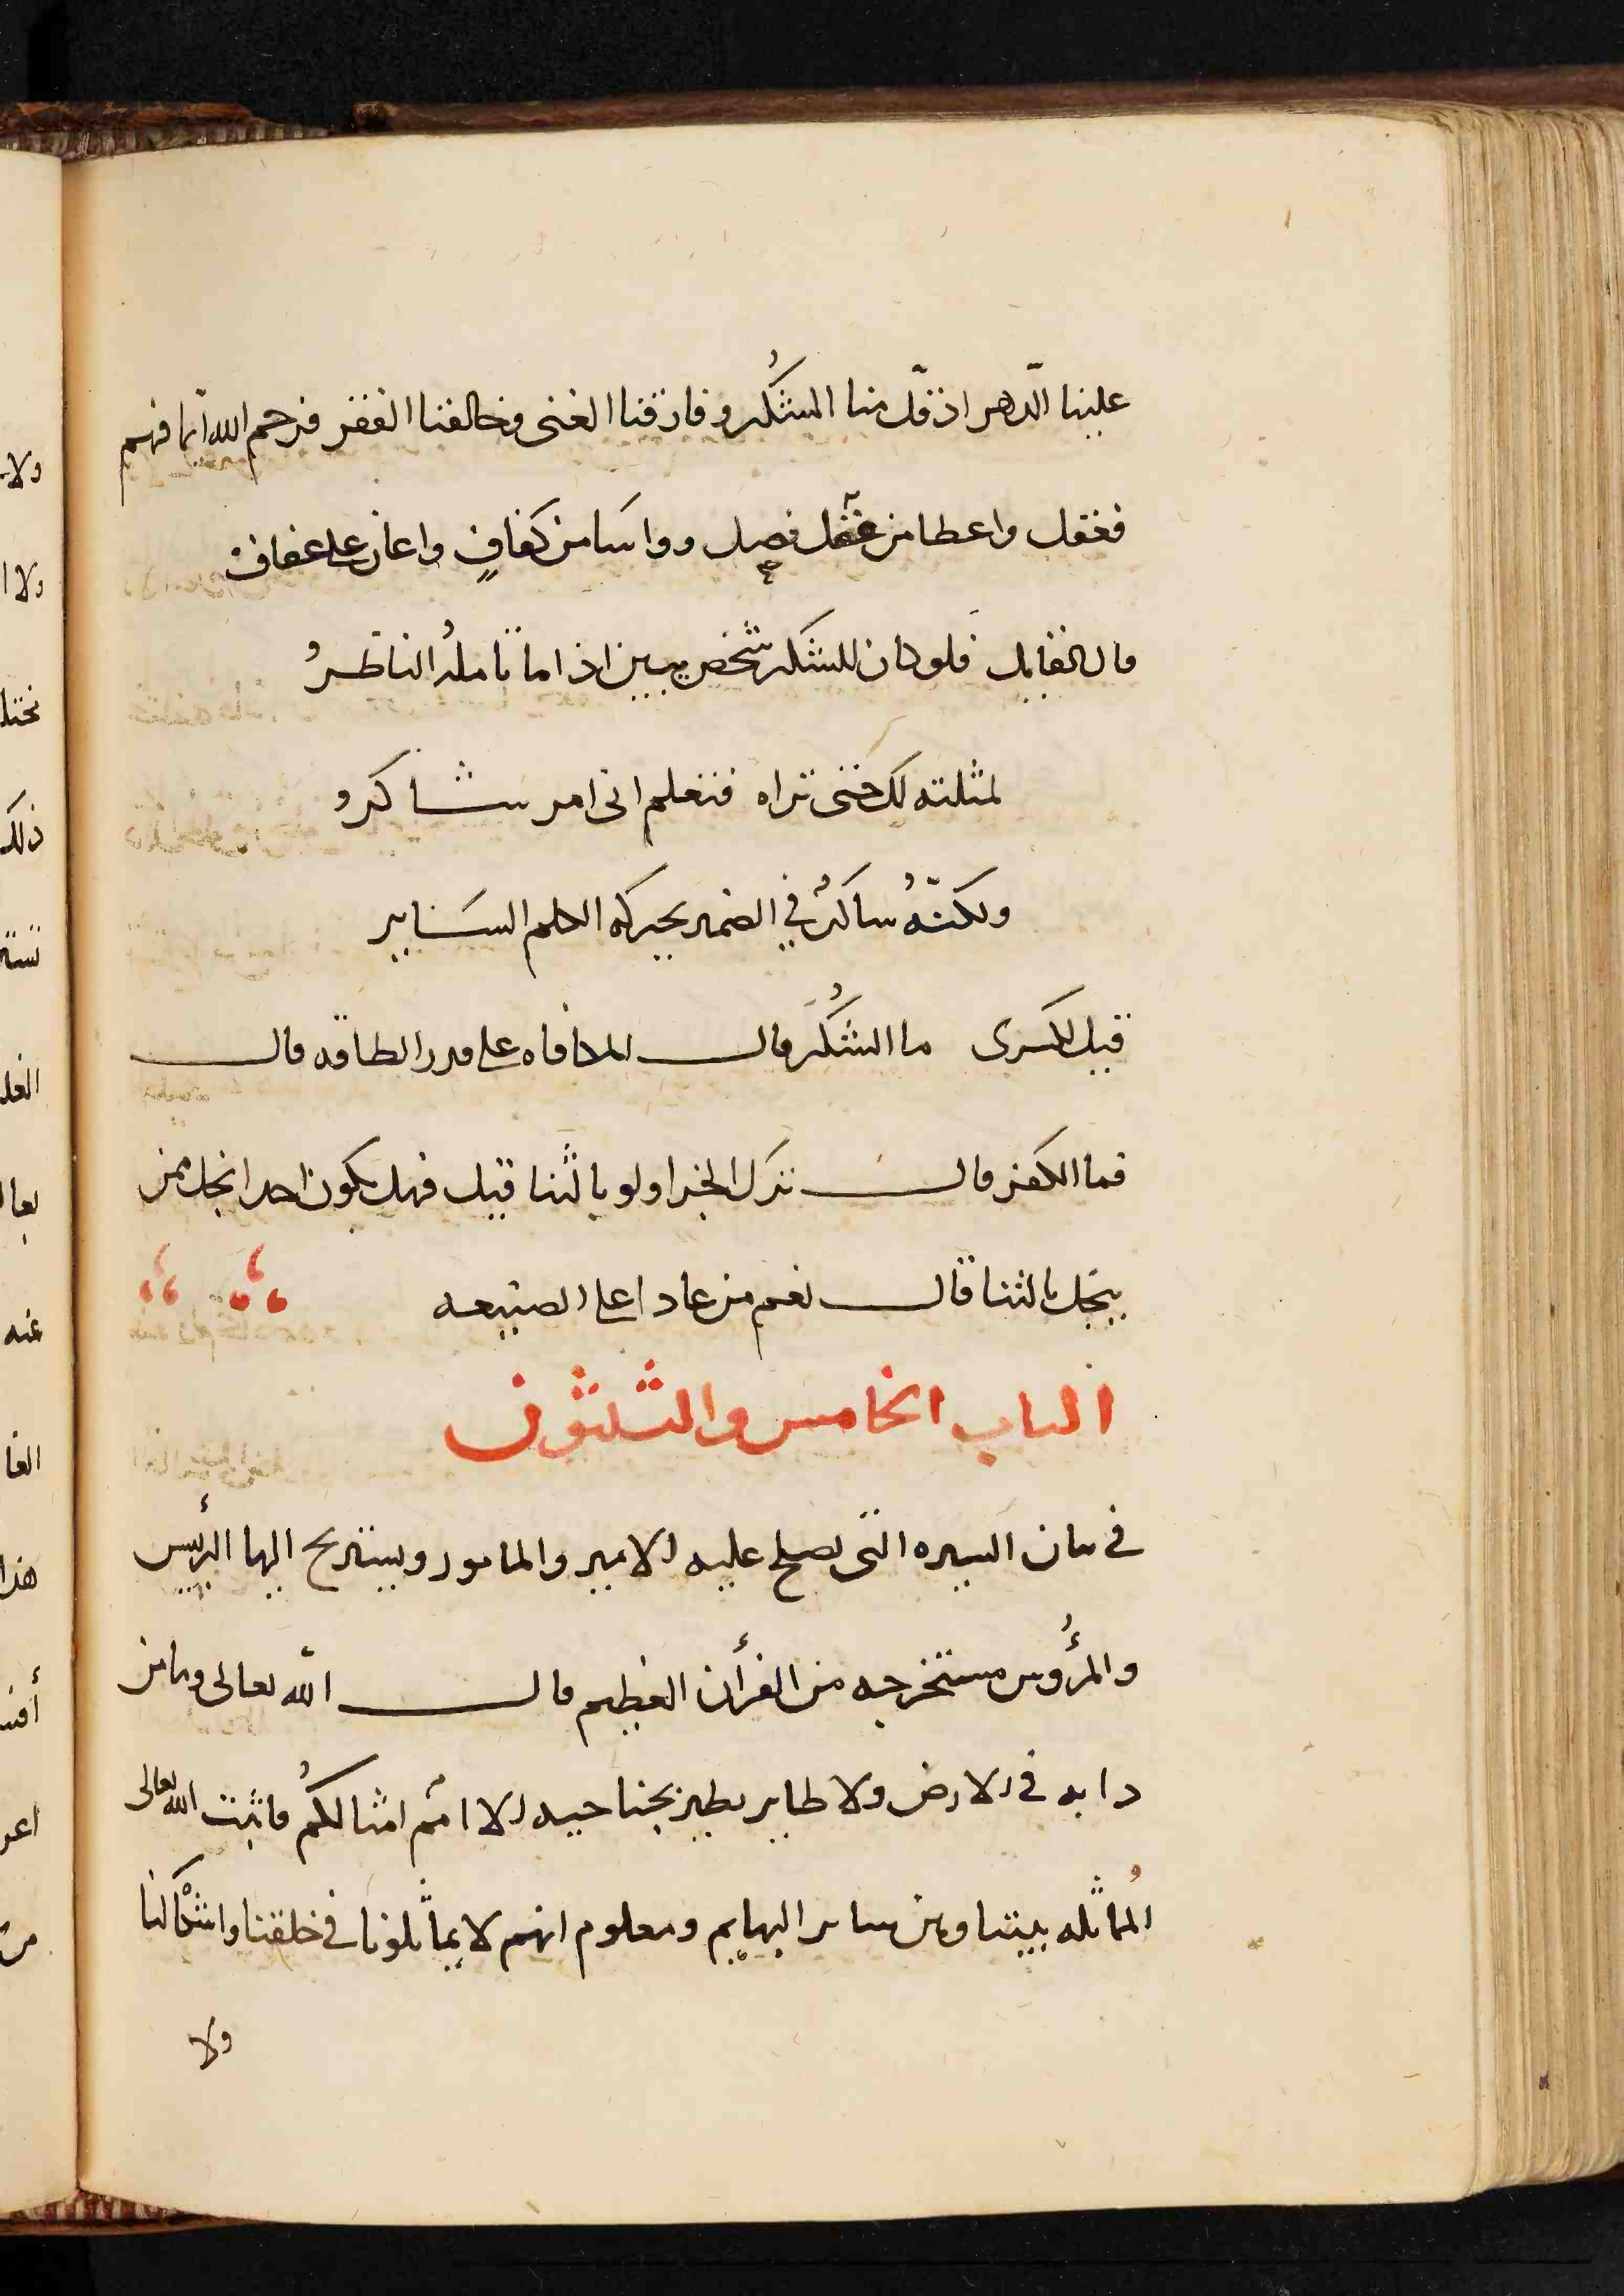 علينا الدّهر اذ قلّ منا الشُكر وفارقنا الغنى وخالفنا الفقر فرحم الله امرا فهم
فعقل واعطا من فضل وواسا من كفافٍ واعان على عفاف
قال القايل فلو كان للشكر شخص يبين اذا ما تامله الناظرُ
لمثلته لك حتى تراه فتعلم انى امر شاكرو
ولكنّهُ ساكنٌ في الضمير يحركه الكلم الساير
قيل لكسرى ما الشُكر قال المكافاه على قدر الطاقه قال
فما الكفر قال ترك الجزا ولو بالثنا قيل فهل يكون احد ابخل ممن
يبخل بالثنا قال نعم من عادا على الصنيعه
الباب الخامس والثلثون
في بيان السيره التى يصلح عليه الامير والمامور ويستريح اليها الرئيس
والمرؤُوس مستخرجه من القرأن العظيم قال الله تعالى وما من
دابه في الارض ولا طاير يطير بجناحيه الا امم امثالكُم فاثبت الله تعالى
المُماثله بيننا وبين ساير البهايم ومعلوم انهم لا يماثلونا في خلقتنا واشكالنا
ولا